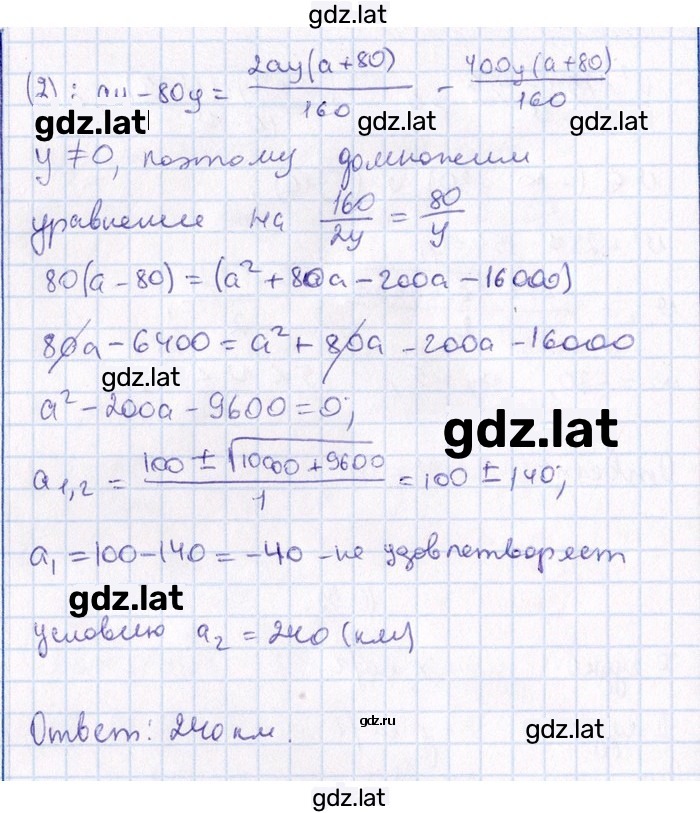 gdz.lat
(2): - 80y = 2ay(a+80)/160 - 400y(a+80)/160
gdz.lat gdz.lat gdz.lat
y ≠ 0, поэтому домножим
уравнение на 160/2y = 80/y
80(a - 80) = (a² + 80a - 200a - 16000)
80a - 6400 = a² + 80a - 200a - 16000
gdz.lat
a² - 200a - 9600 = 0;
gdz.lat
a₁,₂ = (100 ± √(10000 + 9600))/1 = 100 ± 140;
a₁ = 100 - 140 = -40 - не удовлетворяет
gdz.lat
условию a₂ = 240 (км)
Ответ: 240 км.
gdz.ru
gdz.lat
gdz.lat